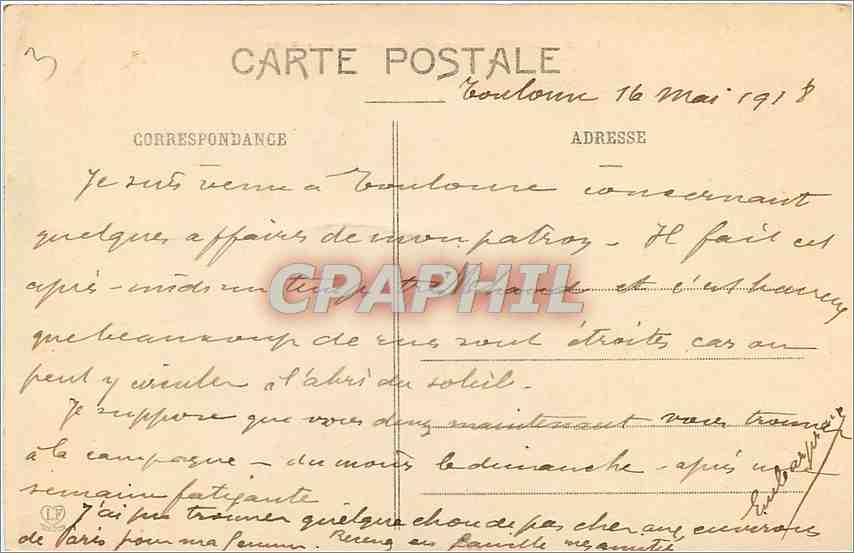 3
CARTE POSTALE
Toulouse 16 Mai 1918
CORRESPONDANCE
ADRESSE
Je suis venu à Toulouse concernant
quelques affaires de mon patron - Il fait cet
après-midi un temps très chaud et c'est heureux
que beaucoup de rues sont étroites car on
peut y circuler à l'abri du soleil.
Je suppose que vous devez maintenant vous trouver
à la campagne - du moins le dimanche - après une
semaine fatigante
J'ai pu trouver quelque chose de pas cher aux environs
de Paris pour ma femme. en famille mes amitiés
CPAPHIL
LF